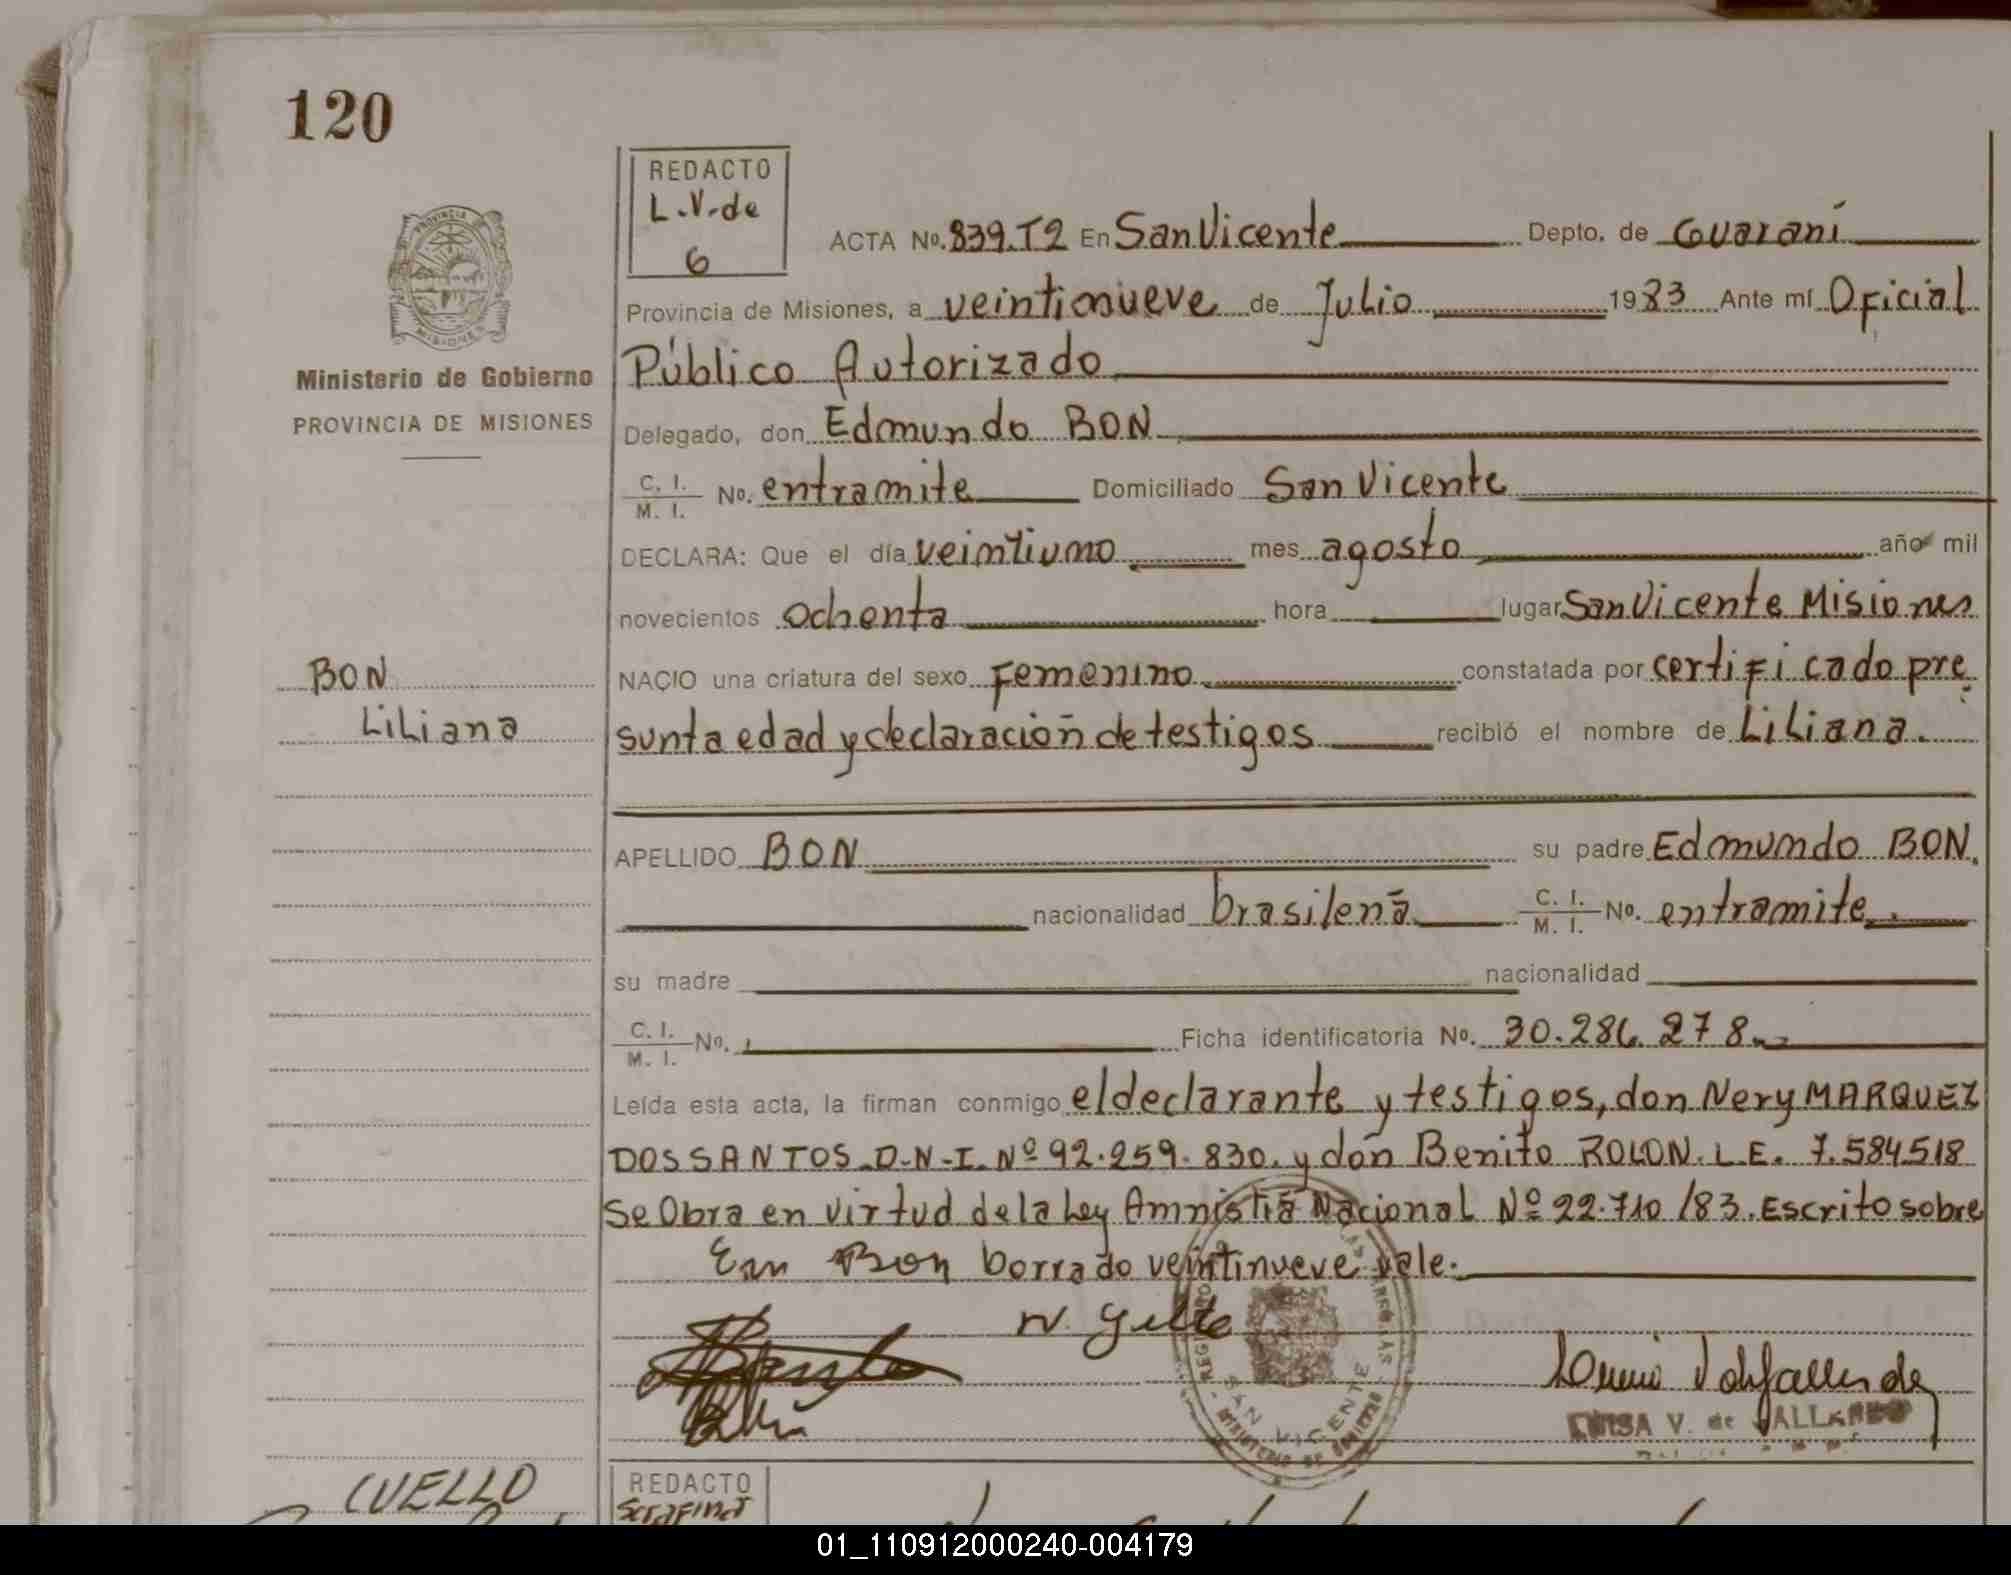 120
REDACTO
L.V.de
6
PROVINCIA
MISIONES
Ministerio de Gobierno
PROVINCIA DE MISIONES
ACTA No. 839.T2 En San Vicente Depto. de Guaraní
Provincia de Misiones, a veintinueve de Julio 1983 Ante mí Oficial
Público Autorizado
Delegado, don Edmundo BON
C. I. / M. I. No. entramite Domiciliado San Vicente
DECLARA: Que el día veintiuno mes agosto año mil
novecientos ochenta hora lugar San Vicente Misiones
BON
NACIO una criatura del sexo Femenino constatada por certificado pre
Liliana
sunta edad y declaración de testigos recibió el nombre de Liliana.
APELLIDO BON su padre Edmundo BON.
nacionalidad brasileña C. I. / M. I. No. entramite.
su madre nacionalidad
C. I. / M. I. No. Ficha identificatoria No. 30.286.278
Leída esta acta, la firman conmigo el declarante y testigos, don Nery MARQUEZ
DOS SANTOS D.N.I. Nº 92.259.830. y don Benito ROLON. L.E. 7.584518
Se Obra en virtud de la Ley Amnistía Nacional Nº 22.710/83. Escrito sobre
Bon borrado veintinueve vale.
SAN VICENTE
V. de
CUELLO
REDACTO
Serafina
01_110912000240-004179